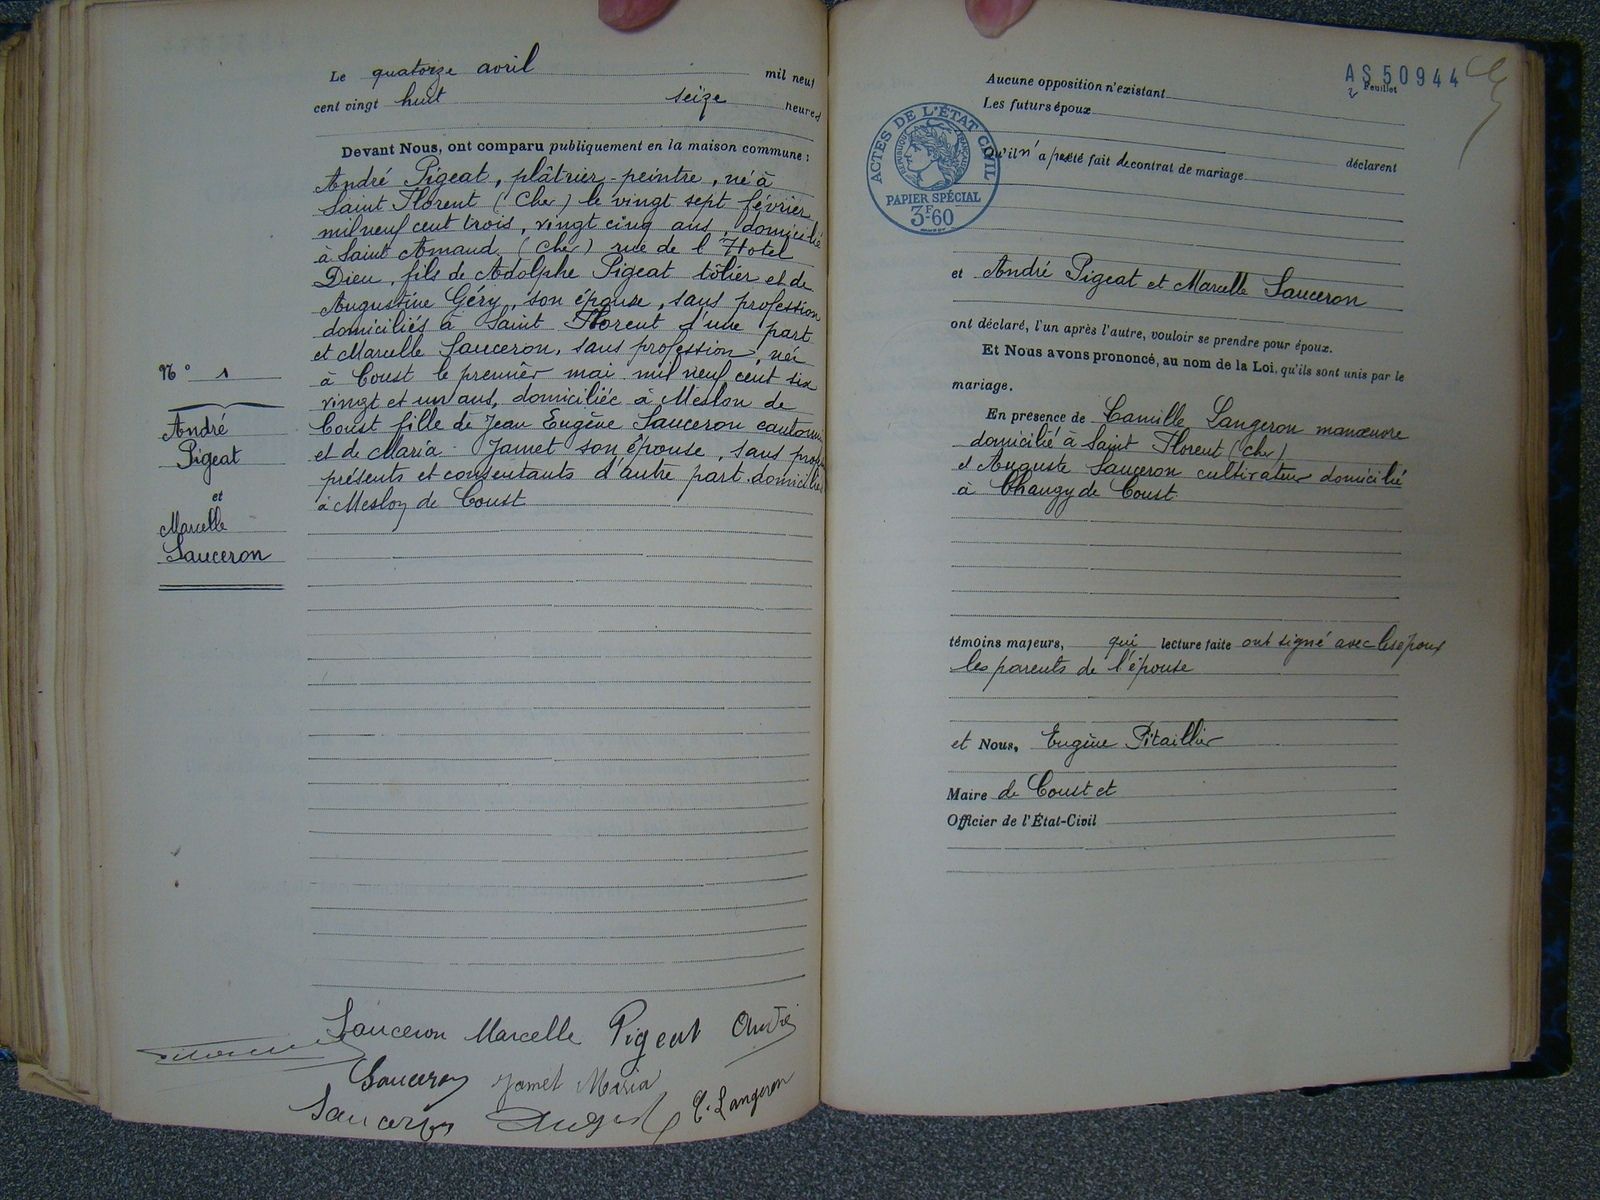 Le quatorze avril mil neuf
cent vingt huit seize heures
Devant Nous, ont comparu publiquement en la maison commune :
André Pigeat, plâtrier-peintre, né à
Saint Florent (Cher) le vingt sept février
mil neuf cent trois, vingt cinq ans, domicilié
à Saint Amand (Cher) rue de l'Hotel
Dieu, fils de Adolphe Pigeat tôlier et de
Augustine Géry, son épouse, sans profession
domiciliés à Saint Florent d'une part
et Marcelle Sauceron, sans profession, née
à Coust le premier mai mil neuf cent six
vingt et un ans, domiciliée à Meslon de
Coust fille de Jean Eugène Sauceron cantonnier
et de Maria Jamet son épouse, sans prof
présents et consentants d'autre part domiciliés
à Meslon de Coust
N° 1
André
Pigeat
et
Marcelle
Sauceron
Sauceron Marcelle Pigeat André
Sauceron Jamet Maria
Sauceron C. Langeron
AS50944
2 Feuillet
ACTES DE L'ÉTAT CIVIL
RÉPUBLIQUE FRANÇAISE
PAPIER SPÉCIAL
3F.60
Aucune opposition n'existant
Les futurs époux
déclarent
qu'il n'a pas été fait de contrat de mariage
et André Pigeat et Marcelle Sauceron
ont déclaré, l'un après l'autre, vouloir se prendre pour époux.
Et Nous avons prononcé, au nom de la Loi, qu'ils sont unis par le
mariage.
En présence de Camille Langeron manœuvre
domicilié à Saint Florent (Cher)
et Auguste Sauceron cultivateur domicilié
à Changy de Coust
témoins majeurs, qui lecture faite ont signé avec les époux
les parents de l'épouse
et Nous, Eugène Pitaillier
Maire de Coust et
Officier de l'État-Civil